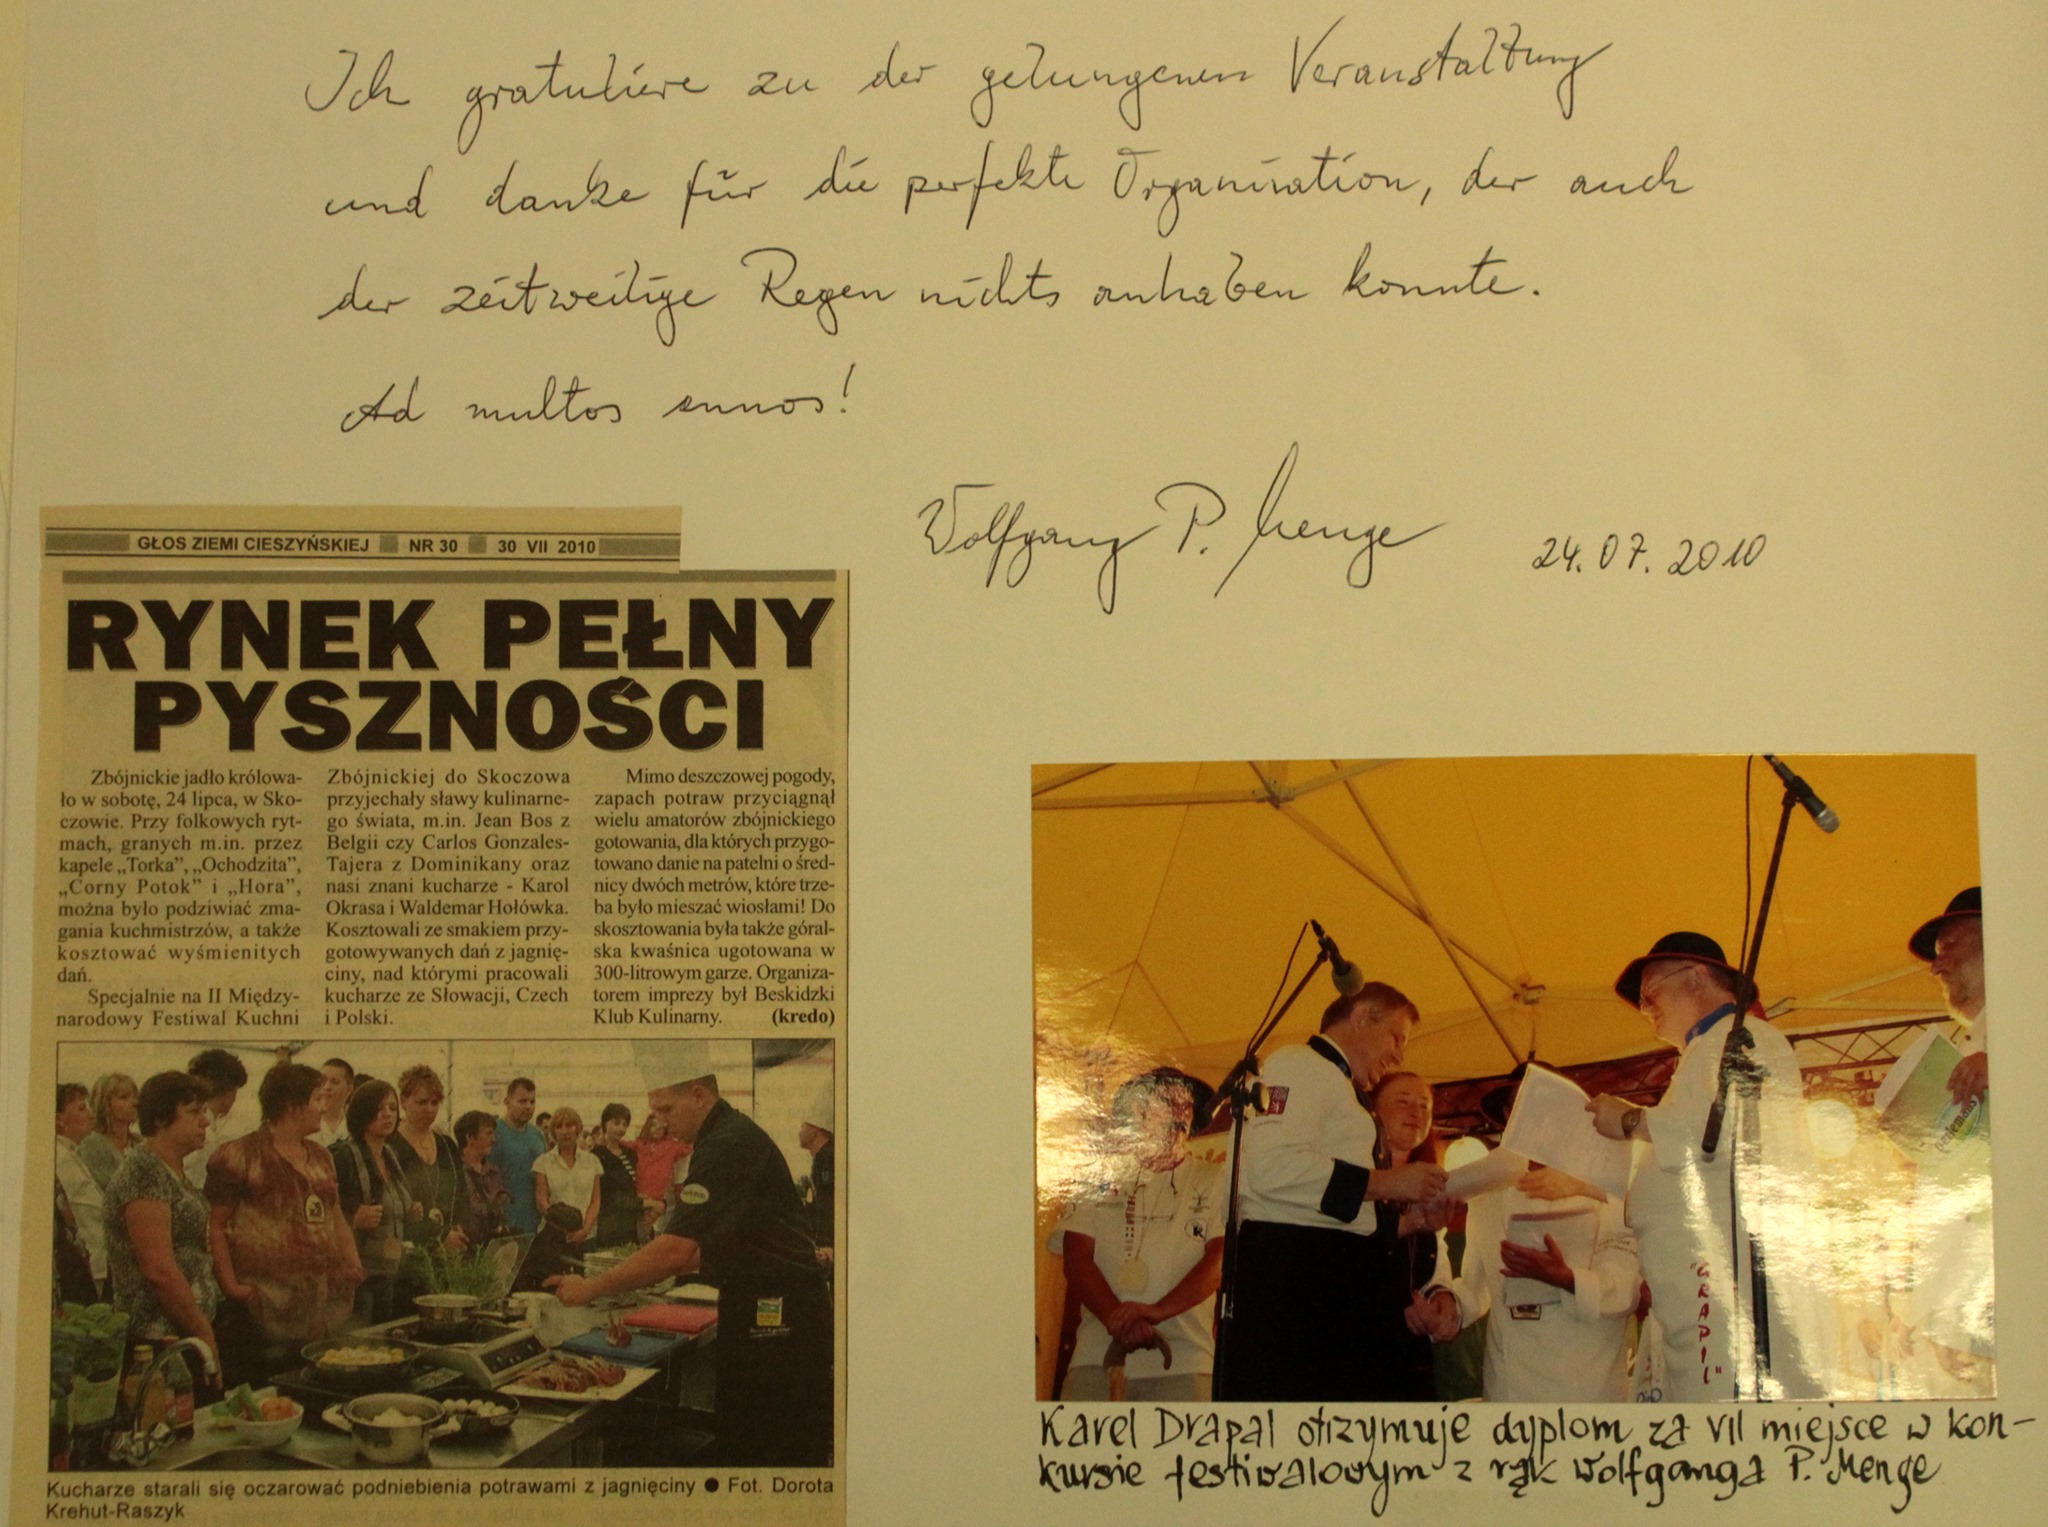 Ich gratuliere zu der gelungenen Veranstaltung
und danke für die perfekte Organisation, der auch
der zeitweilige Regen nichts anhaben konnte.
Ad multos annos!
Wolfgang P. Menge 24.07.2010
GŁOS ZIEMI CIESZYŃSKIEJ NR 30 30 VII 2010
RYNEK PEŁNY
PYSZNOŚCI
Zbójnickie jadło królowa-
ło w sobotę, 24 lipca, w Sko-
czowie. Przy folkowych ryt-
mach, granych m.in. przez
kapele „Torka”, „Ochodzita”,
„Corny Potok” i „Hora”,
można było podziwiać zma-
gania kuchmistrzów, a także
kosztować wyśmienitych
dań.
Specjalnie na II Między-
narodowy Festiwal Kuchni
Zbójnickiej do Skoczowa
przyjechały sławy kulinarne-
go świata, m.in. Jean Bos z
Belgii czy Carlos Gonzales-
Tajera z Dominikany oraz
nasi znani kucharze - Karol
Okrasa i Waldemar Hołówka.
Kosztowali ze smakiem przy-
gotowywanych dań z jagnię-
ciny, nad którymi pracowali
kucharze ze Słowacji, Czech
i Polski.
Mimo deszczowej pogody,
zapach potraw przyciągnął
wielu amatorów zbójnickiego
gotowania, dla których przygo-
towano danie na patelni o śred-
nicy dwóch metrów, które trze-
ba było mieszać wiosłami! Do
skosztowania była także góral-
ska kwaśnica ugotowana w
300-litrowym garze. Organiza-
torem imprezy był Beskidzki
Klub Kulinarny. (kredo)
Kucharze starali się oczarować podniebienia potrawami z jagnięciny ● Fot. Dorota
Krehut-Raszyk
"GRAPIL"
Karel Drapal otrzymuje dyplom za VII miejsce w kon-
kursie festiwalowym z rąk Wolfganga P. Menge